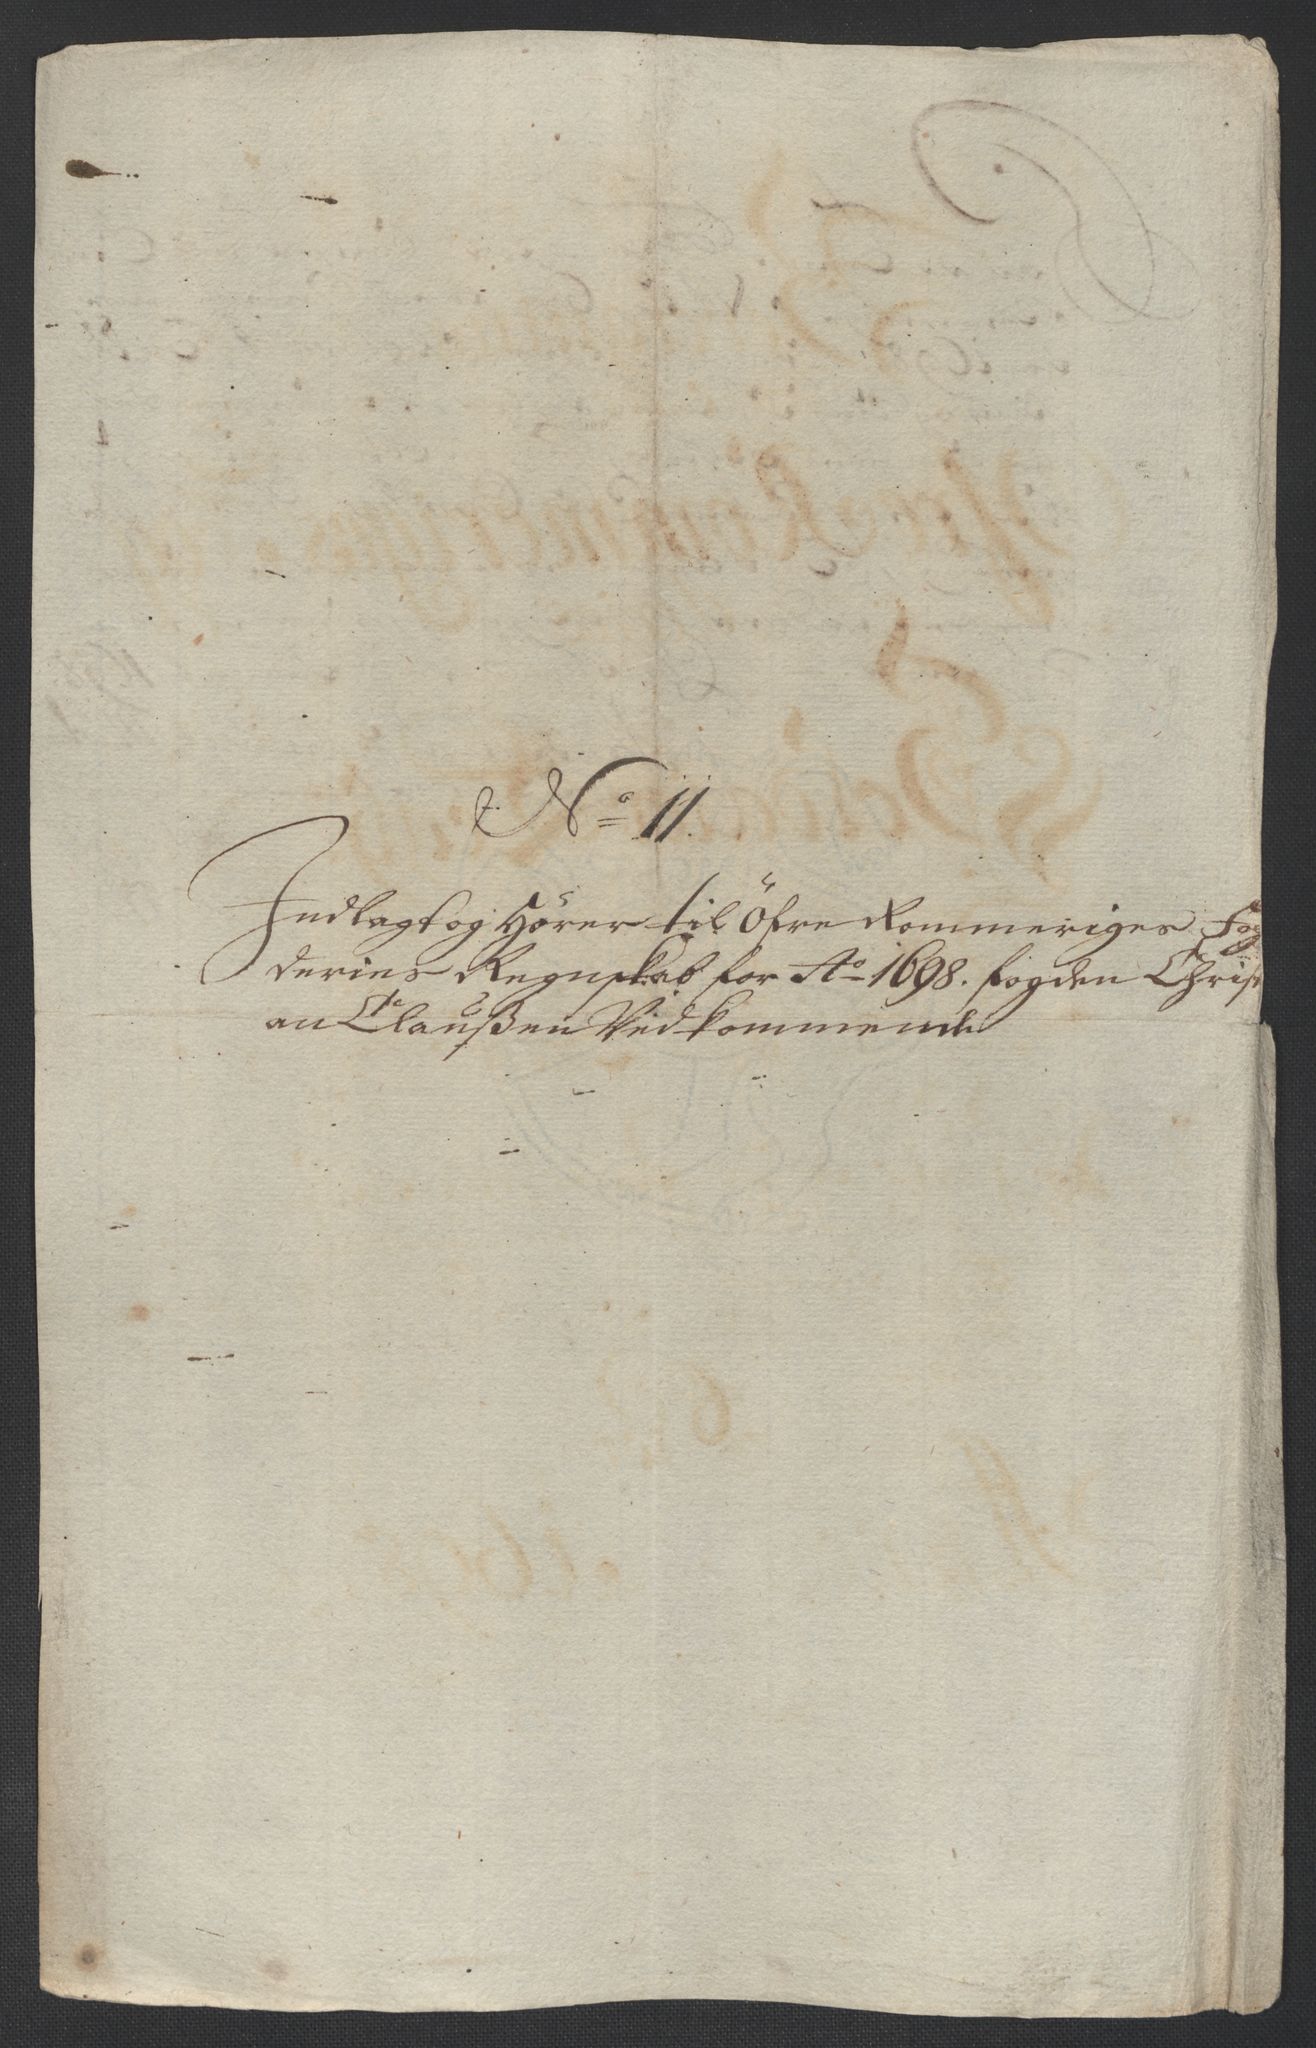 No 11.
Indlagt og Hører til Öfre Rommeriges Fog
deries Regnskab for Ao 1698. fogden Christ
an Claußen Vedkommende